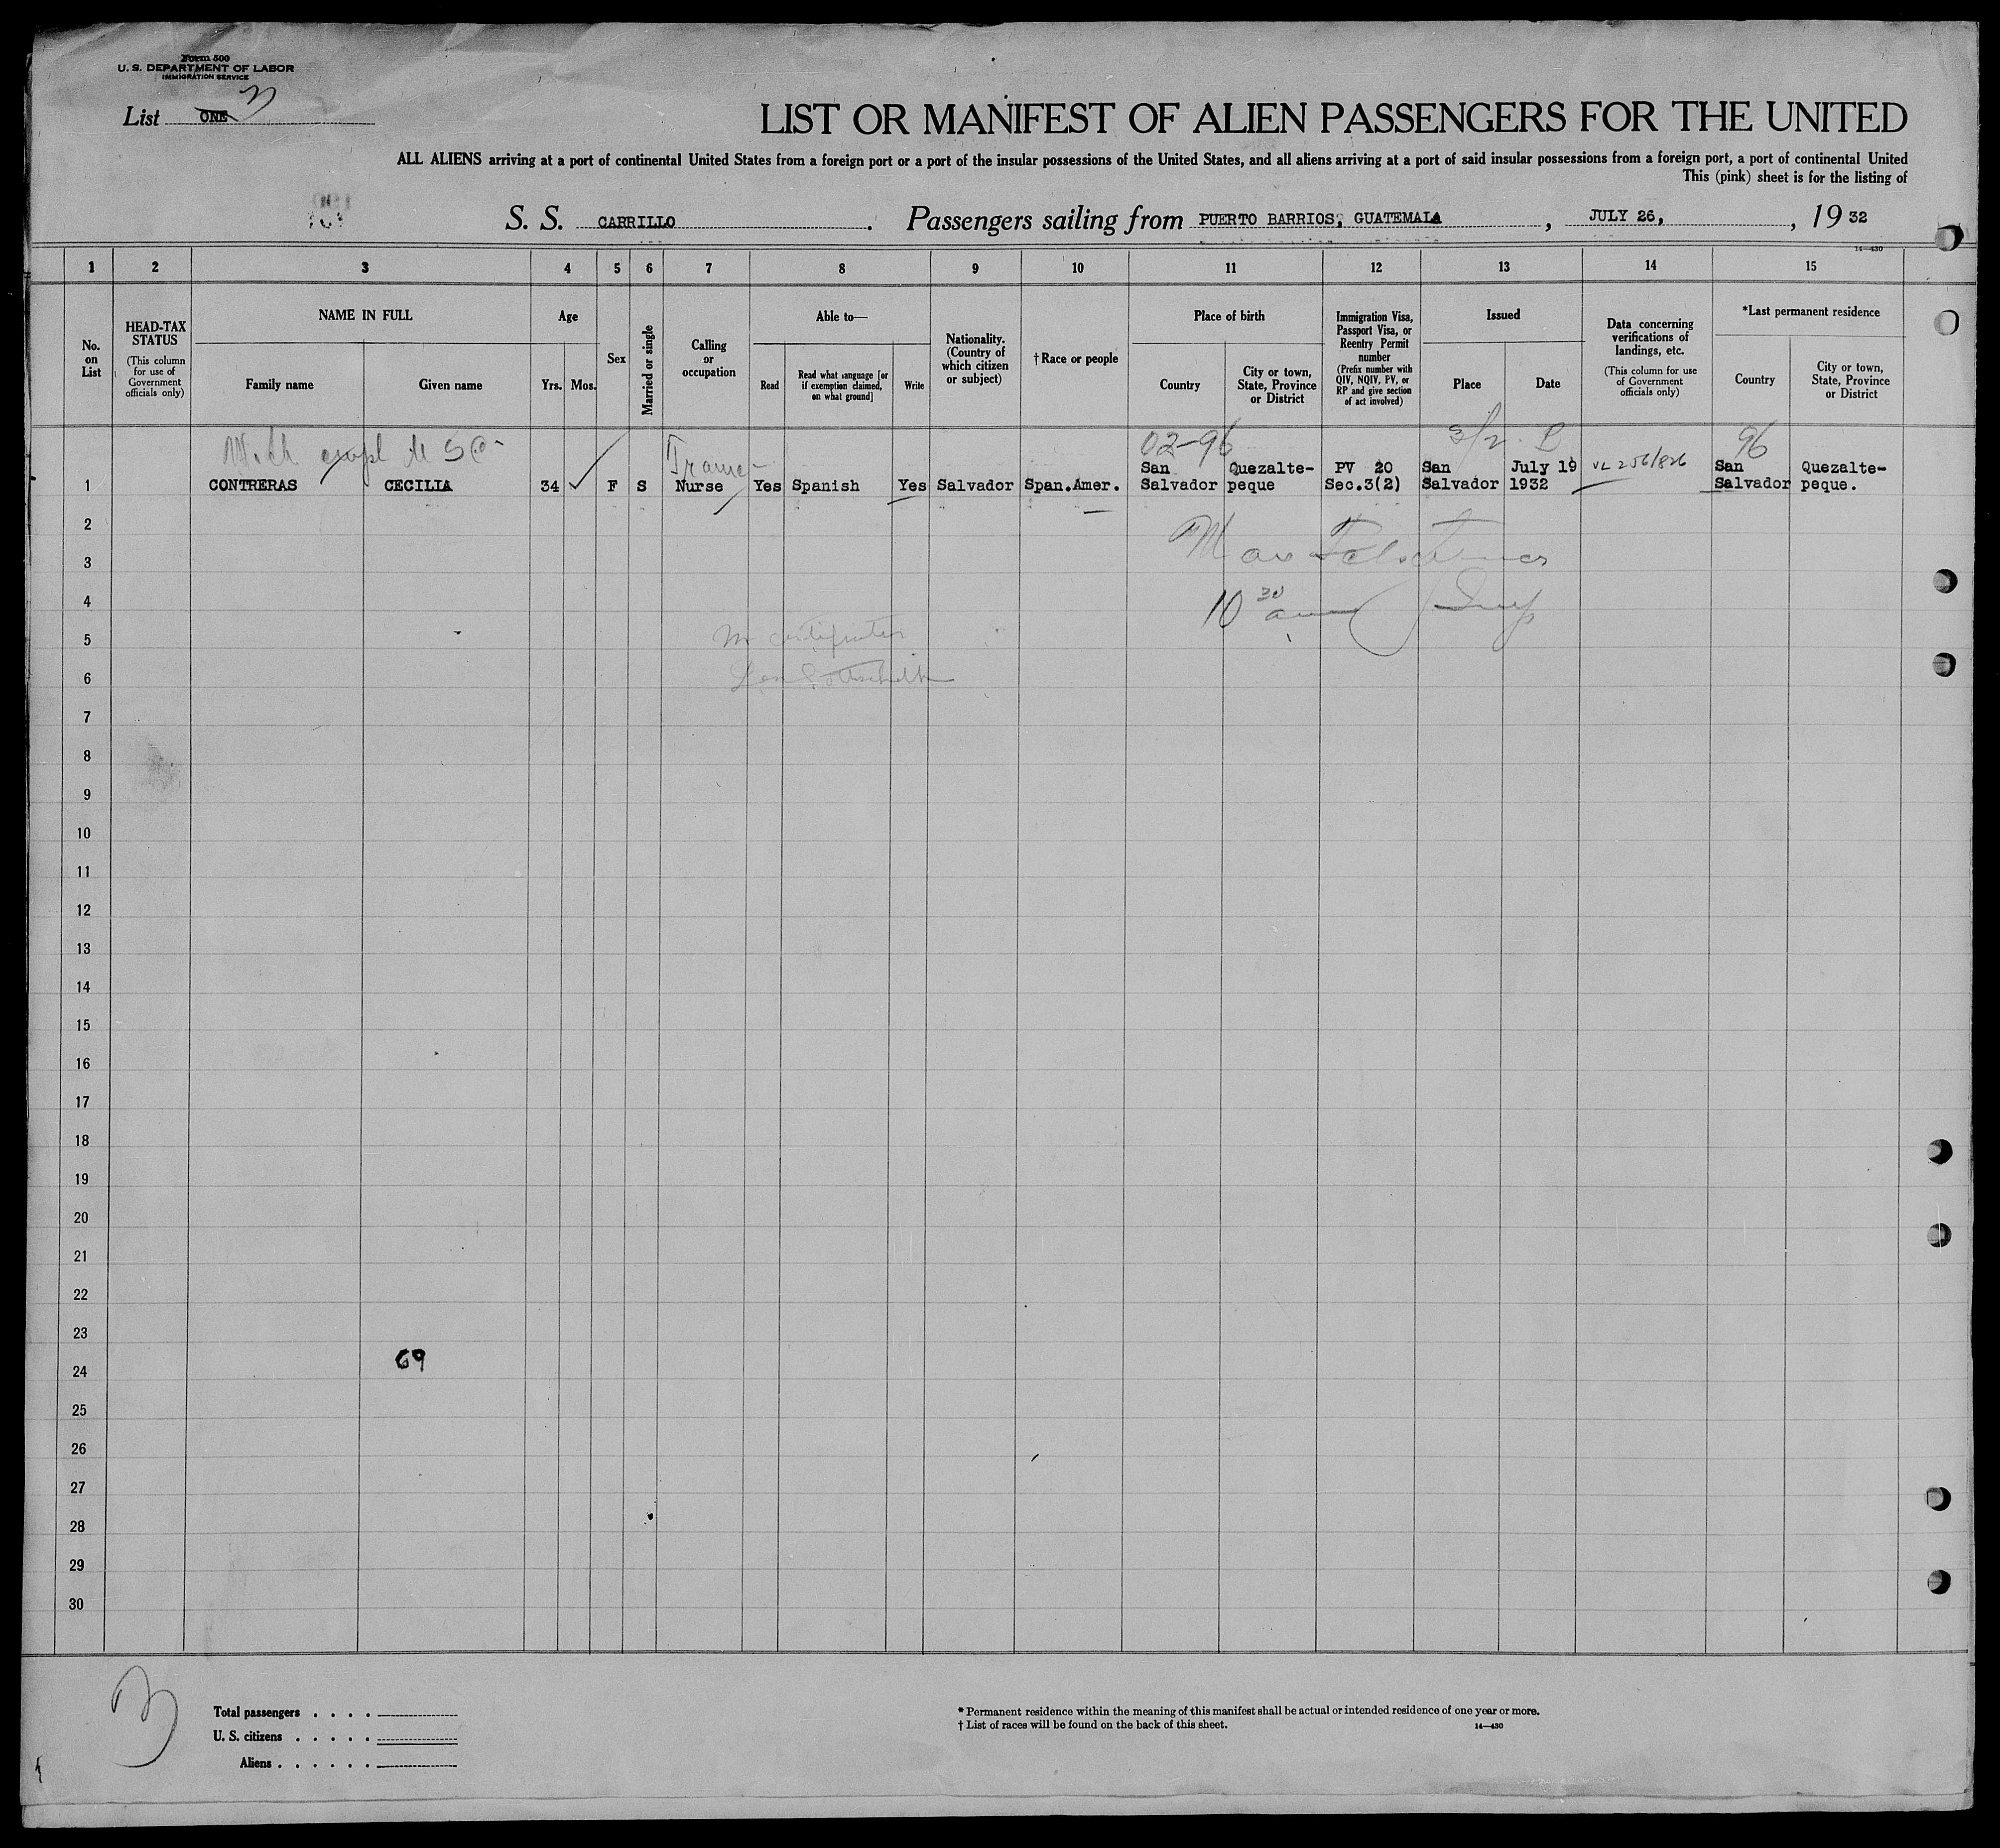 Form 500
U. S. DEPARTMENT OF LABOR
IMMIGRATION SERVICE
List ONE 3
LIST OR MANIFEST OF ALIEN PASSENGERS FOR THE UNITED
ALL ALIENS arriving at a port of continental United States from a foreign port or a port of the insular possessions of the United States, and all aliens arriving at a port of said insular possessions from a foreign port, a port of continental United
This (pink) sheet is for the listing of
S. S. CARRILLO. Passengers sailing from PUERTO BARRIOS, GUATEMALA, JULY 26, , 19 32
14—430
1 2 3 4 5 6 7 8 9 10 11 12 13 14 15
No. on List
HEAD-TAX STATUS
(This column for use of Government officials only)
NAME IN FULL
Family name Given name
Age
Yrs. Mos.
Sex
Married or single
Calling or occupation
Able to—
Read
Read what language [or if exemption claimed, on what ground]
Write
Nationality. (Country of which citizen or subject)
†Race or people
Place of birth
Country
City or town, State, Province or District
Immigration Visa, Passport Visa, or Reentry Permit number
(Prefix number with QIV, NQIV, PV, or RP and give section of act involved)
Issued
Place Date
Data concerning verifications of landings, etc.
(This column for use of Government officials only)
*Last permanent residence
Country
City or town, State, Province or District
02-96 96
San Quezalte- PV 20 San July 19 San Quezalte-
1 CONTRERAS CECILIA 34 F S Nurse Yes Spanish Yes Salvador Span.Amer. Salvador peque Sec.3(2) Salvador 1932 Salvador peque.
2
3
10 30 am
4
5
6
7
8
9
10
11
12
13
14
15
16
17
18
19
20
21
22
23
69
24
25
26
27
28
29
30
3
Total passengers . . . .
U. S. citizens . . . . .
Aliens . . . . . .
* Permanent residence within the meaning of this manifest shall be actual or intended residence of one year or more.
† List of races will be found on the back of this sheet.
14—430